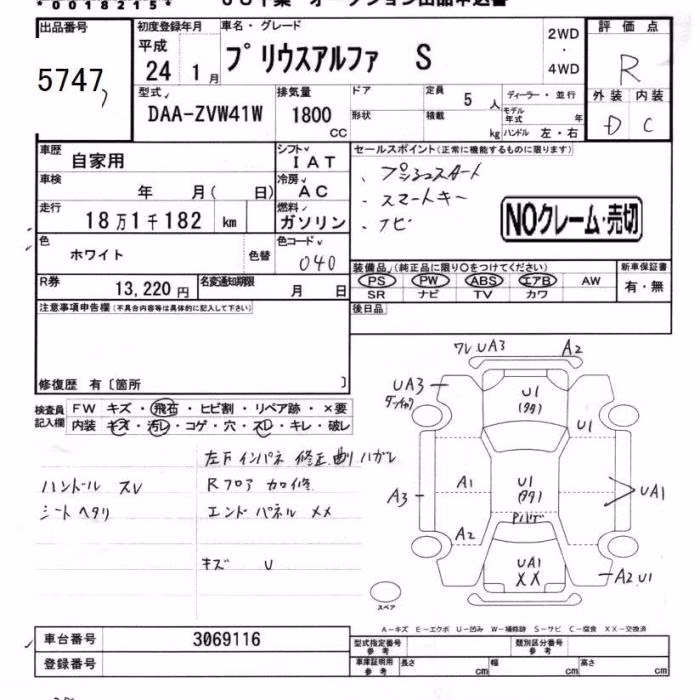 *0018215*
出品番号 初度登録年月 車名・グレード 2WD・4WD 評価点
5747 平成24 1月 プリウスアルファ S R
型式 排気量 ドア 定員 5人 ディーラー・並行 外装 内装
DAA-ZVW41W 1800CC 形状 積載 kg モデル年式 年 ハンドル 左・右 D C
車歴 自家用 シフト IAT セールスポイント(正常に機能するものに限ります)
車検 年 月(日) 冷房 AC ・プッシュスタート
走行 18万1千182 km 燃料 ガソリン ・スマートキー
・ナビ
NOクレーム・売切
色 ホワイト 色替 色コード 040
装備品(純正品に限り○をつけてください) 新車保証書
PS PW ABS エアB AW 有・無
SR ナビ TV カワ
R券 13,220円 名変通知期限 月 日
注意事項申告欄(不具合内容等は具体的に記入して下さい) 後日品
修復歴 有〔箇所 〕
検査員記入欄 FW キズ・飛石・ヒビ割・リペア跡・×要
内装 キズ・汚レ・コゲ・穴・スレ・キレ・破レ
左下インパネ修正 曲リ ハガレ
ハンドル スレ Rフロア 加修
シートヘタリ エンドパネル XX
キズ U
ワレUA3 A2
UA3 U1
U1
A1 U1
A3 UA1
A2
UA1 XX A2 U1
スペア
A-キズ E-エクボ U-凹み W-補修跡 S-サビ C-腐食 XX-交換済
車台番号 3069116 型式指定番号 参考 類別区分番号 参考
登録番号 車庫証明用 参考 長さ cm 幅 cm 高さ cm